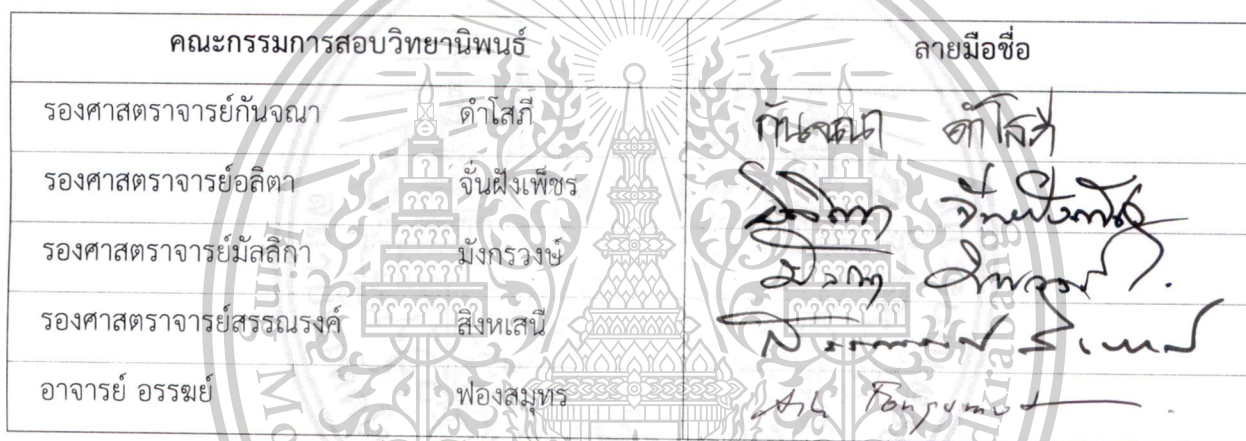 คณะกรรมการสอบวิทยานิพนธ์ ลายมือชื่อ
รองศาสตราจารย์กันจณา ดำโสภี กันจณา ดำโสภี
รองศาสตราจารย์อลิตา จั่นฝังเพ็ชร
รองศาสตราจารย์มัลลิกา มังกรวงษ์
รองศาสตราจารย์สรรณรงค์ สิงหเสนี
อาจารย์ อรรฆย์ ฟองสมุทร